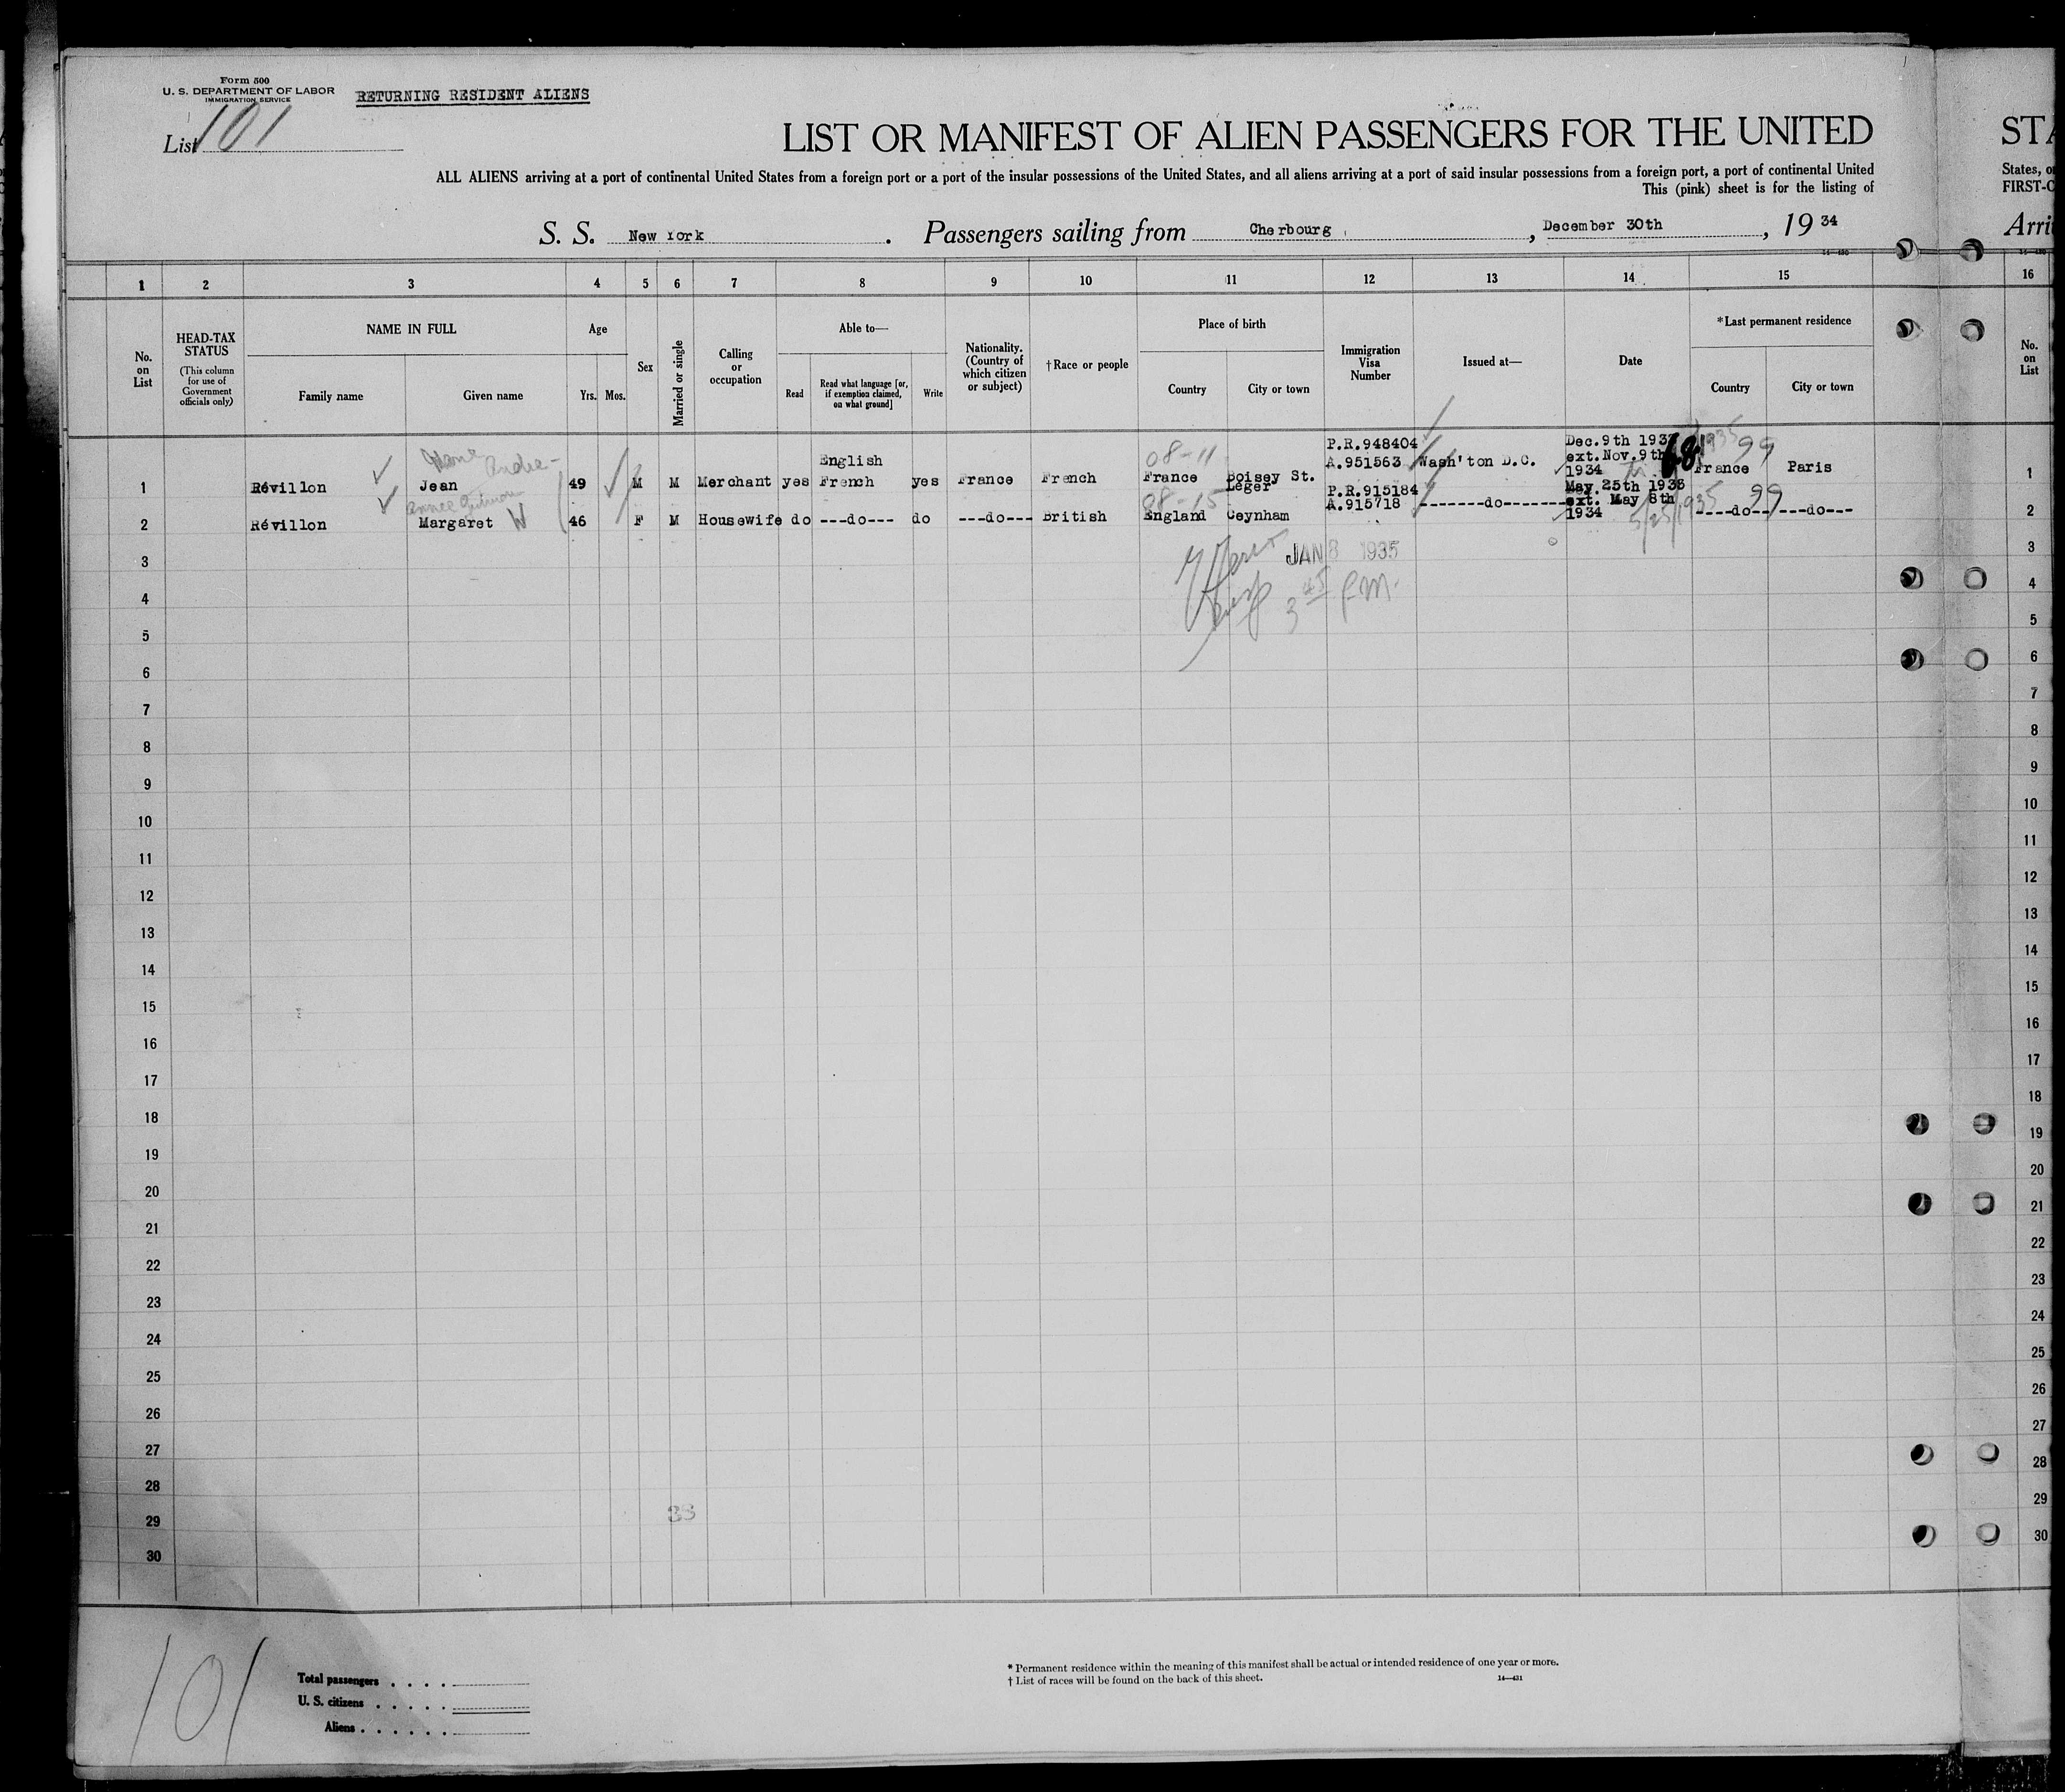 Form 500
U. S. DEPARTMENT OF LABOR
IMMIGRATION SERVICE
RETURNING RESIDENT ALIENS
List 101
LIST OR MANIFEST OF ALIEN PASSENGERS FOR THE UNITED
STA
ALL ALIENS arriving at a port of continental United States from a foreign port or a port of the insular possessions of the United States, and all aliens arriving at a port of said insular possessions from a foreign port, a port of continental United
States, o
This (pink) sheet is for the listing of
FIRST-C
S. S. New York. Passengers sailing from Cherbourg, December 30th, 1934
Arri
1 2 3 4 5 6 7 8 9 10 11 12 13 14 15 16
No. on List
HEAD-TAX STATUS
(This column for use of Government officials only)
NAME IN FULL
Family name Given name
Age
Yrs. Mos.
Sex
Married or single
Calling or occupation
Able to—
Read
Read what language [or, if exemption claimed, on what ground]
Write
Nationality. (Country of which citizen or subject)
†Race or people
Place of birth
Country City or town
Immigration Visa Number
Issued at—
Date
*Last permanent residence
Country City or town
No. on List
1 Révillon Jean Andre 49 M M Merchant yes English French yes France French 08-11 France Boisey St. Leger P.R.948404 A.951563 Wash'ton D.C. Dec.9th ext.Nov.9th 1934 1935 99 France Paris 1
2 Révillon Margaret W 46 F M Housewife do ---do--- do ---do--- British 08-15 England Ceynham P.R.915184 A.915718 -------do------- May 25th ext. May 8th 1934 5/25/1935 99 ----do-- ---do--- 2
JAN 8 1935
3 45 P.M.
3 3
4 4
5 5
6 6
7 7
8 8
9 9
10 10
11 11
12 12
13 13
14 14
15 15
16 16
17 17
18 18
19 19
20 20
21 21
22 22
23 23
24 24
25 25
26 26
27 27
28 28
29 29
30 30
101
Total passengers
U. S. citizens
Aliens
* Permanent residence within the meaning of this manifest shall be actual or intended residence of one year or more.
† List of races will be found on the back of this sheet.
14—431